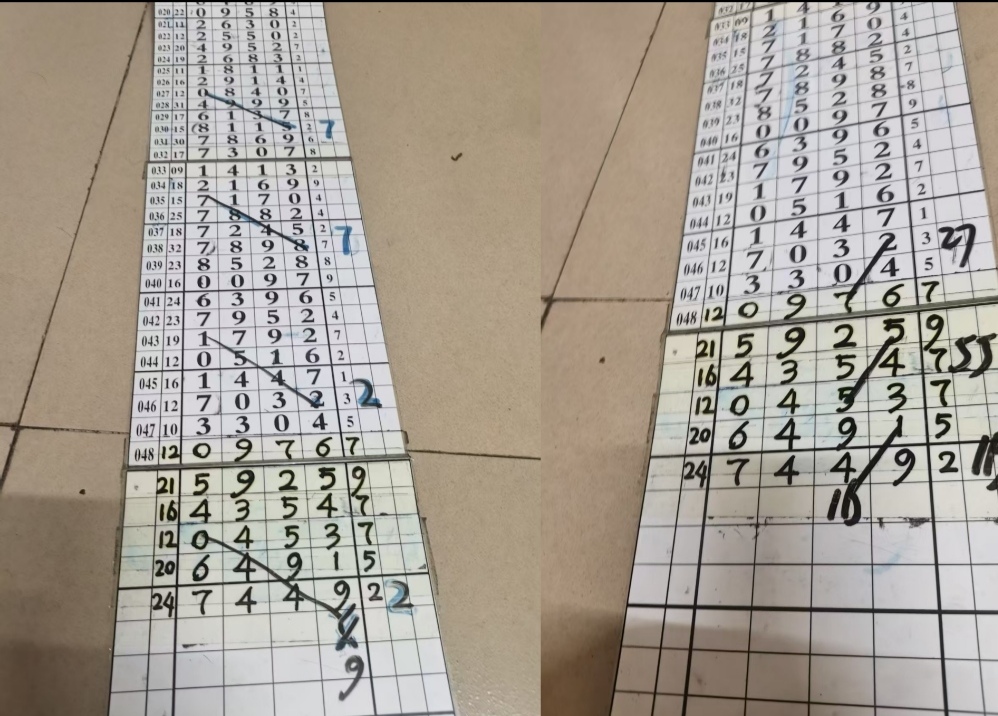 020 22 0 9 5 8 4
021 13 2 6 3 0 2
022 12 2 5 5 0 2
023 20 4 9 5 2 7
024 19 2 6 8 3 2
025 11 1 8 1 1 1
026 16 2 9 1 4 4
027 12 0 8 4 0 7
028 31 4 9 9 9 5
029 17 6 1 3 7 8
030 15 8 1 1 5 2 7
031 30 7 8 6 9 6
032 17 7 3 0 7 8
033 09 1 4 1 3 2
034 18 2 1 6 9 9
035 15 7 1 7 0 4
036 25 7 8 8 2 4
037 18 7 2 4 5 2 7
038 32 7 8 9 8 7
039 23 8 5 2 8 8
040 16 0 0 9 7 9
041 24 6 3 9 6 5
042 23 7 9 5 2 4
043 19 1 7 9 2 7
044 12 0 5 1 6 2
045 16 1 4 4 7 1
046 12 7 0 3 2 3 2
047 10 3 3 0 4 5
048 12 0 9 7 6 7
21 5 9 2 5 9
16 4 3 5 4 7
12 0 4 5 3 7
20 6 4 9 1 5
24 7 4 4 9 2 2
9
033 09 1 4
034 18 2 1 6 9
035 15 7 1 7 0 4
036 25 7 8 8 2 4
037 18 7 2 4 5 2
038 32 7 8 9 8 7
039 23 8 5 2 8 8
040 16 0 0 9 7 9
041 24 6 3 9 6 5
042 23 7 9 5 2 4
043 19 1 7 9 2 7
044 12 0 5 1 6 2
045 16 1 4 4 7 1
046 12 7 0 3 2 3 27
047 10 3 3 0 4 5
048 12 0 9 7 6 7
21 5 9 2 5 9
16 4 3 5 4 7 55
12 0 4 5 3 7
20 6 4 9 1 5
24 7 4 4 9 2